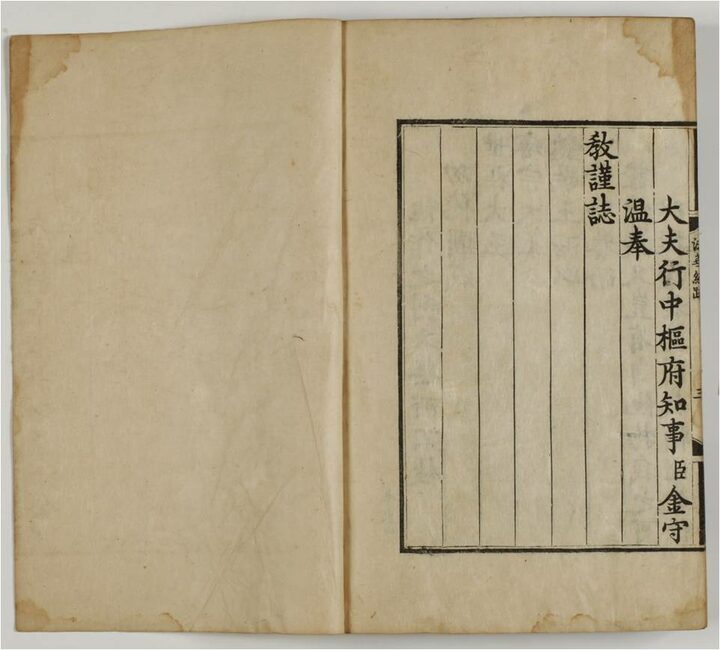 大夫行中樞府知事臣金守
温奉
教謹誌